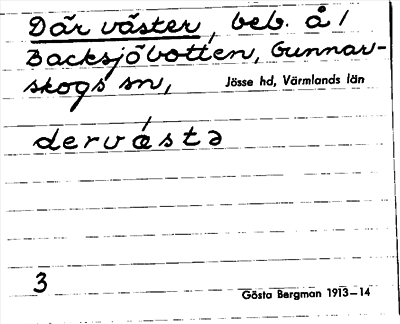 Där väster, beb. å /
Backsjöbotten, Gunnar-
skogs sn, Jösse hd, Värmlands län
dervǽstə
3
Gösta Bergman 1913–14